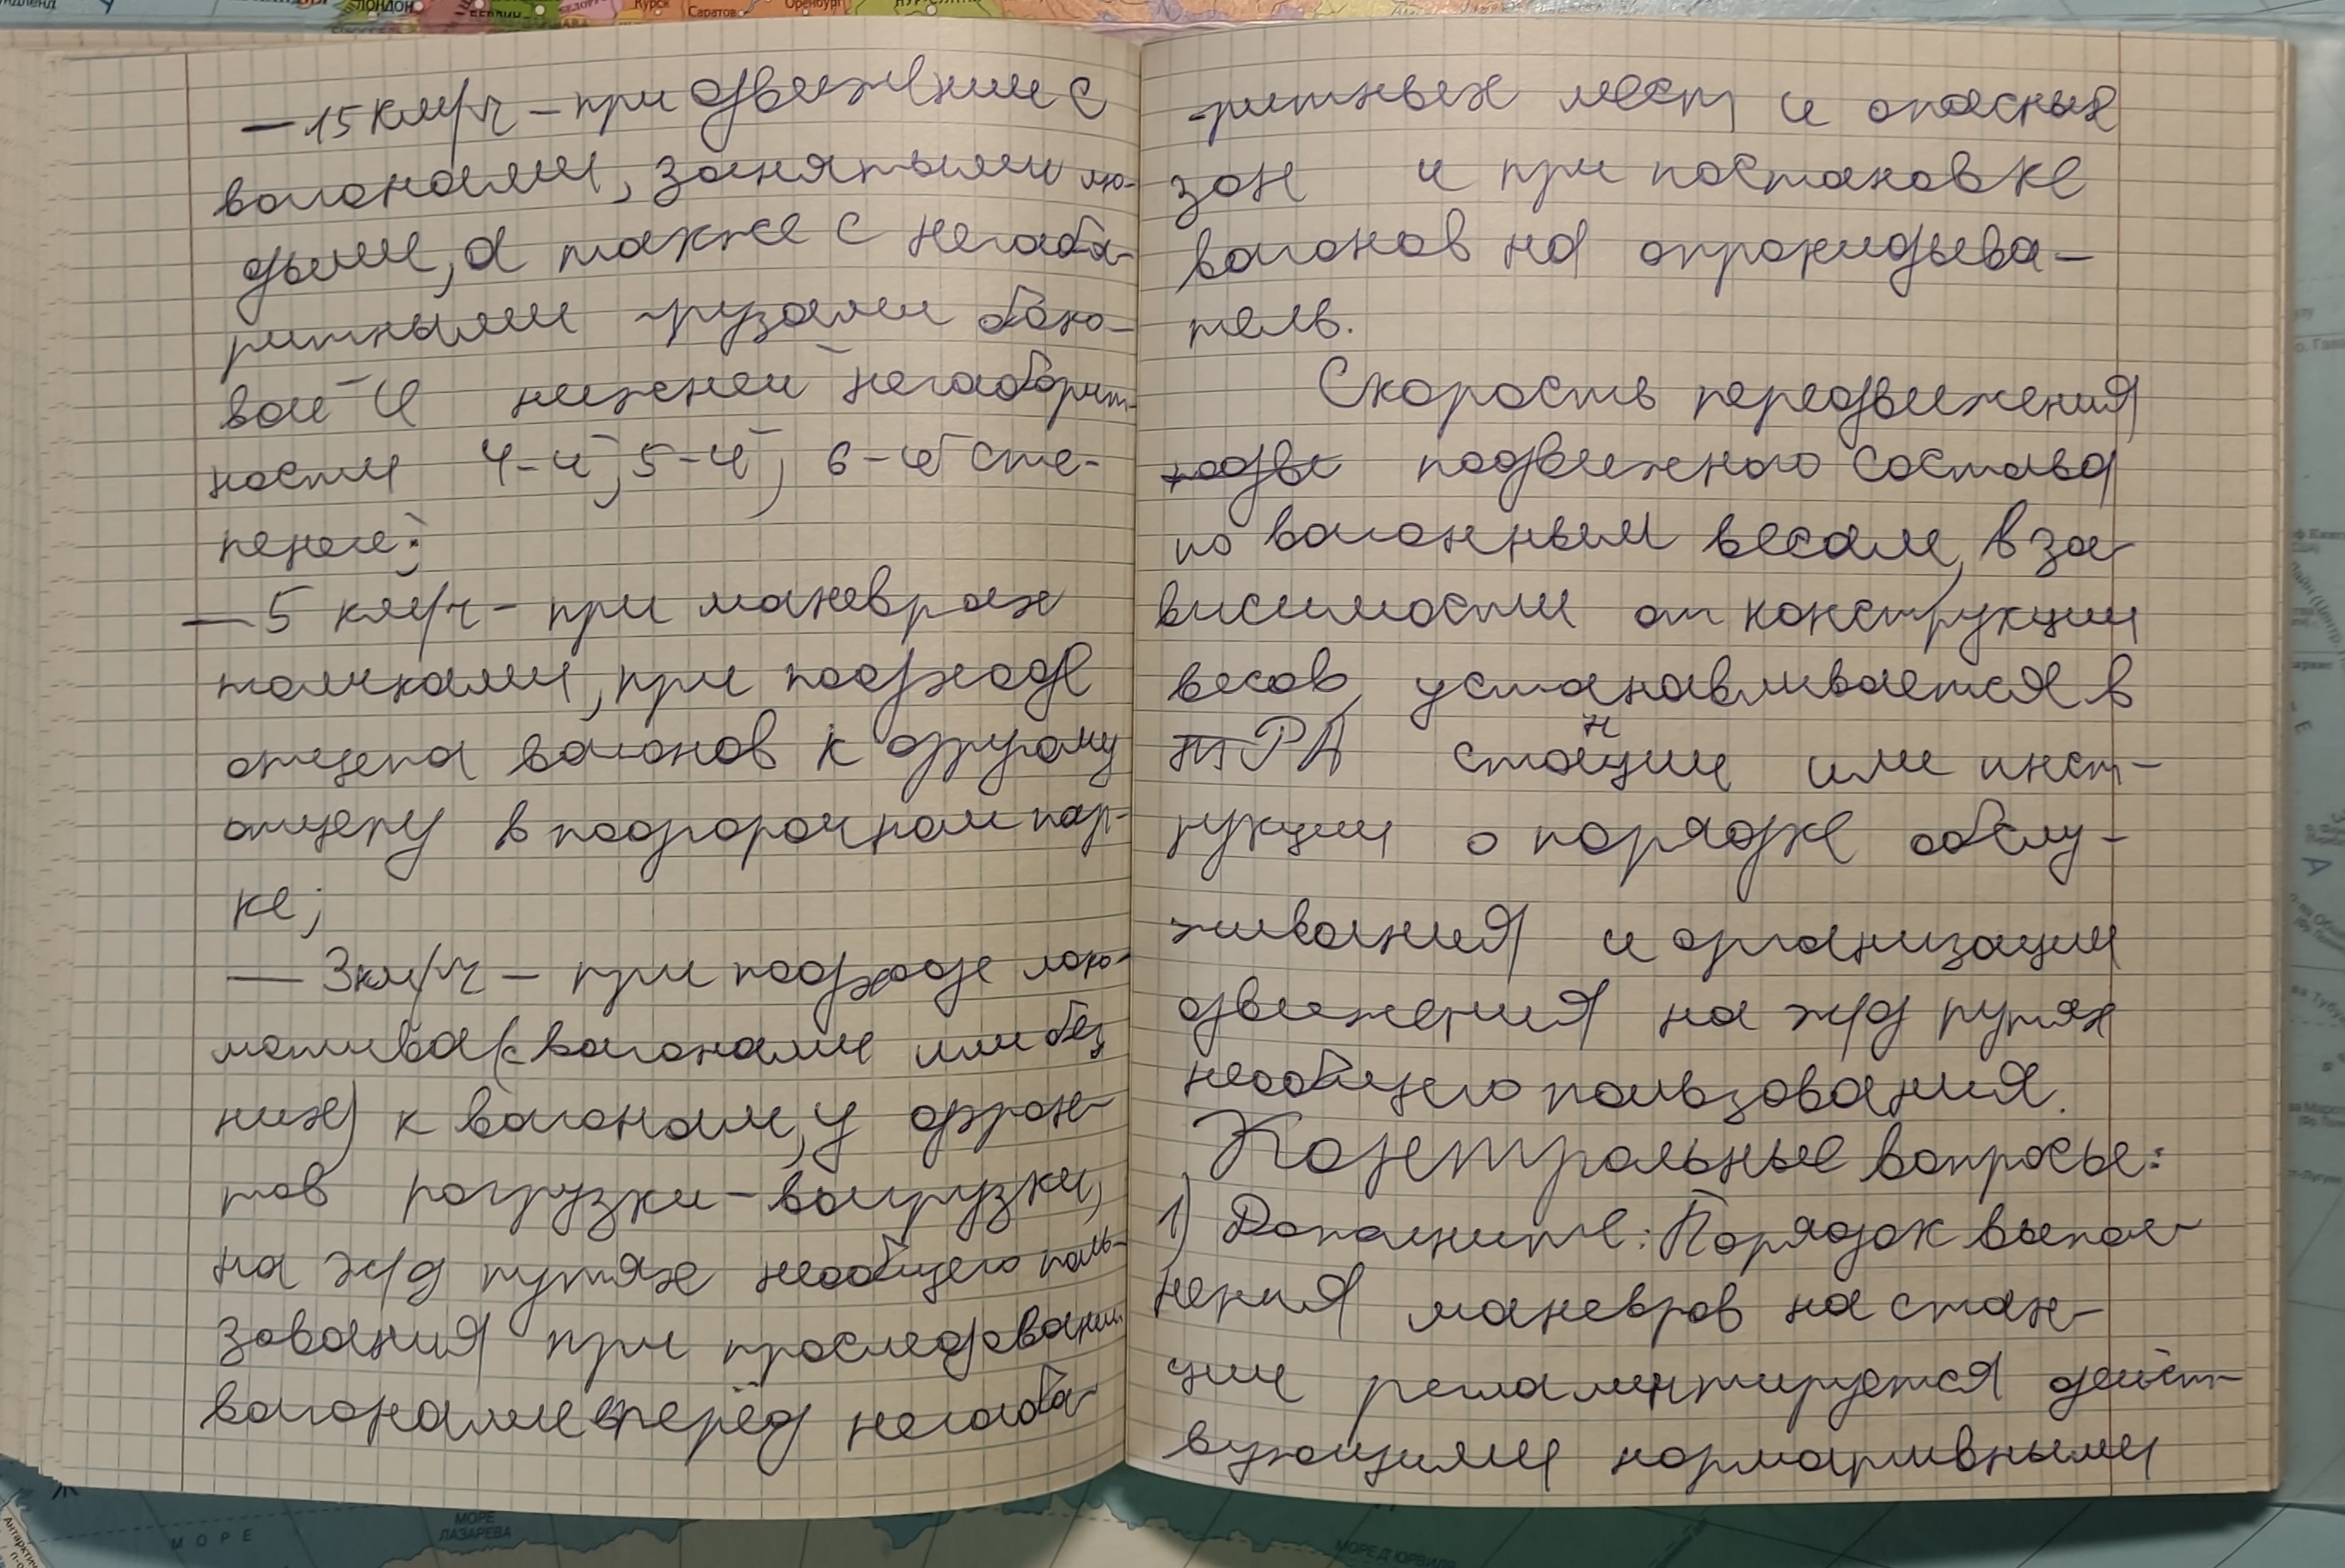 ЛОНДОН
БЕРЛИН
Курск
Саратов
Оренбург
— 15 км/ч – при движении с
вагонами, занятыми лю-
дьми, а также с негаба-
ритными грузами боко-
вой и нижней негабарит-
ности 4-й, 5-й, 6-й сте-
пеней;
— 5 км/ч – при маневрах
толчками, при подходе
отцепа вагонов к другому
отцепу в подгорочном пар-
ке;
— 3 км/ч – при подходе локо-
мотива (с вагонами или без
них) к вагонам, у фрон-
тов погрузки-выгрузки,
на ж/д путях необщего поль-
зования при проследовании
вагонами вперёд негаба-
-ритных мест и опасных
зон и при постановке
вагонов на опрокидыва-
тель.
Скорость передвижения
подви подвижного состава
по вагонным весам, в за-
висимости от конструкции
весов, устанавливается в
ТРА станции или инст-
рукции о порядке обслу-
живания и организации
движения на ж/д путях
необщего пользования.
Контрольные вопросы:
1) Дополните: Порядок выпол-
нения маневров на стан-
ции регламентируется дейст-
вующими нормативными
МОРЕ
МОРЕ
ЛАЗАРЕВА
МОРЕ Д'ЮРВИЛЯ